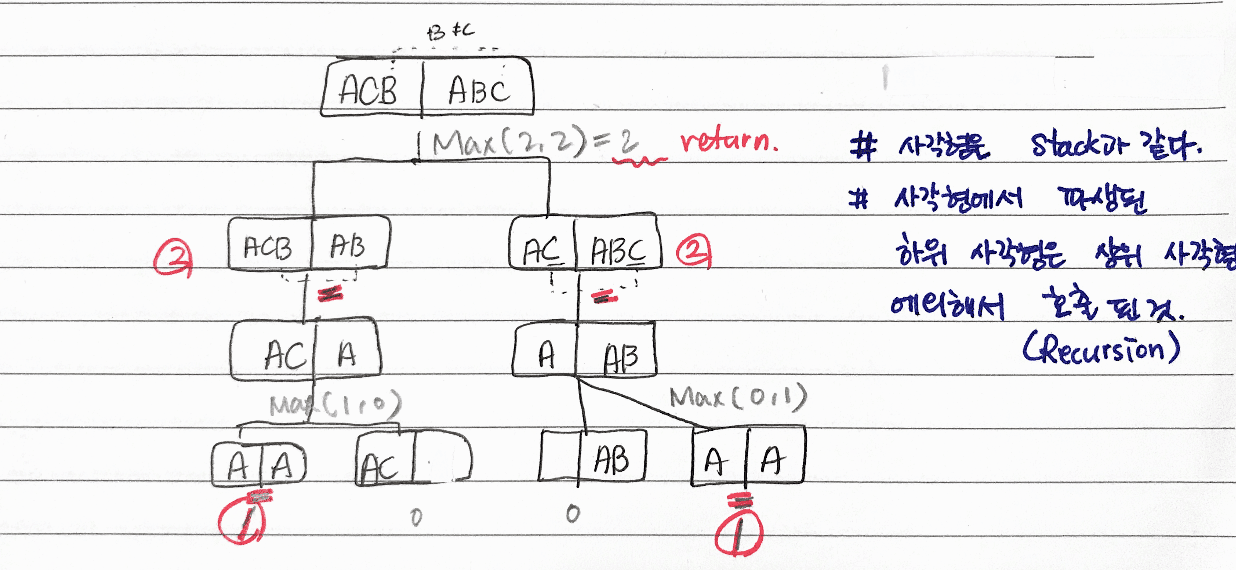 B ≠ C
ACB ABC
Max(2,2)=2 return.
# 사각형은 Stack과 같다.
# 사각형에서 파생된
하위 사각형은 상위 사각형
에의해서 호출 된 것.
(Recursion)
② ACB AB
=
AC ABC ②
=
AC A
A AB
Max(1,0)
Max(0,1)
A A
=
①
AC
0
AB
0
A A
=
①